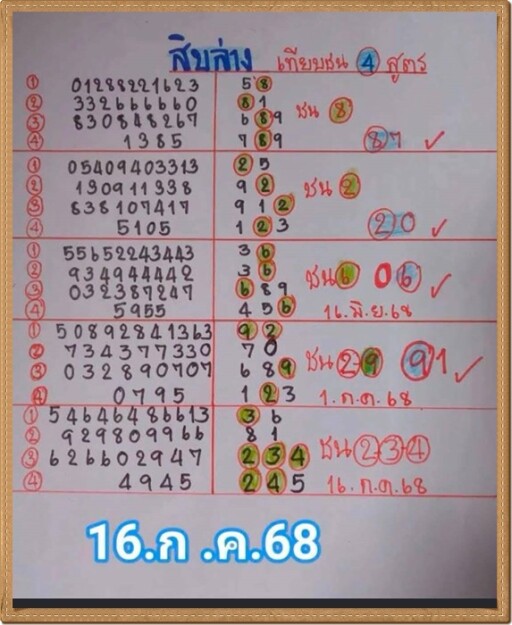 สิบล่าง เทียบชน 4 สูตร
① 01288221623 58
② 332666660 81
③ 830848267 689 ชน 8
④ 1385 789 87 ✓
① 05409403313 25
② 130911338 92 ชน 2
③ 838107417 912
④ 5105 123 20 ✓
① 55652243443 36
② 934944442 36 ชน 6 06 ✓
③ 032387247 689
④ 5955 456 16.มิ.ย.68
① 50892841363 92
② 734377330 70 ชน 2-9 91 ✓
③ 032890707 689
④ 0795 123 1.ก.ค.68
① 54646486613 36
② 929809966 81
③ 626602947 234 ชน 2-3-4
④ 4945 245 16.ก.ค.68
16.ก .ค.68